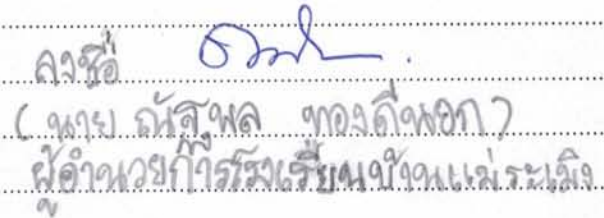 ลงชื่อ
( นาย ณัฐพล ทองดีนอก )
ผู้อำนวยการโรงเรียนบ้านแม่ระเมิง